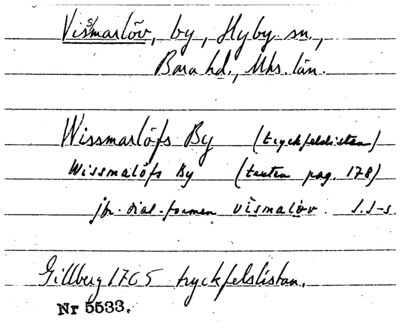 Vissmarlöv, by, Hyby sn.,
Bara hd., Mhs. län.
Wissmarlöfs By (tryckfelslistan)
Wissmalöfs By (texten pag. 178)
jfr. dial-formen vismalöv. S.S-s.
Gillberg 1765 tryckfelslistan.
Nr 5533.